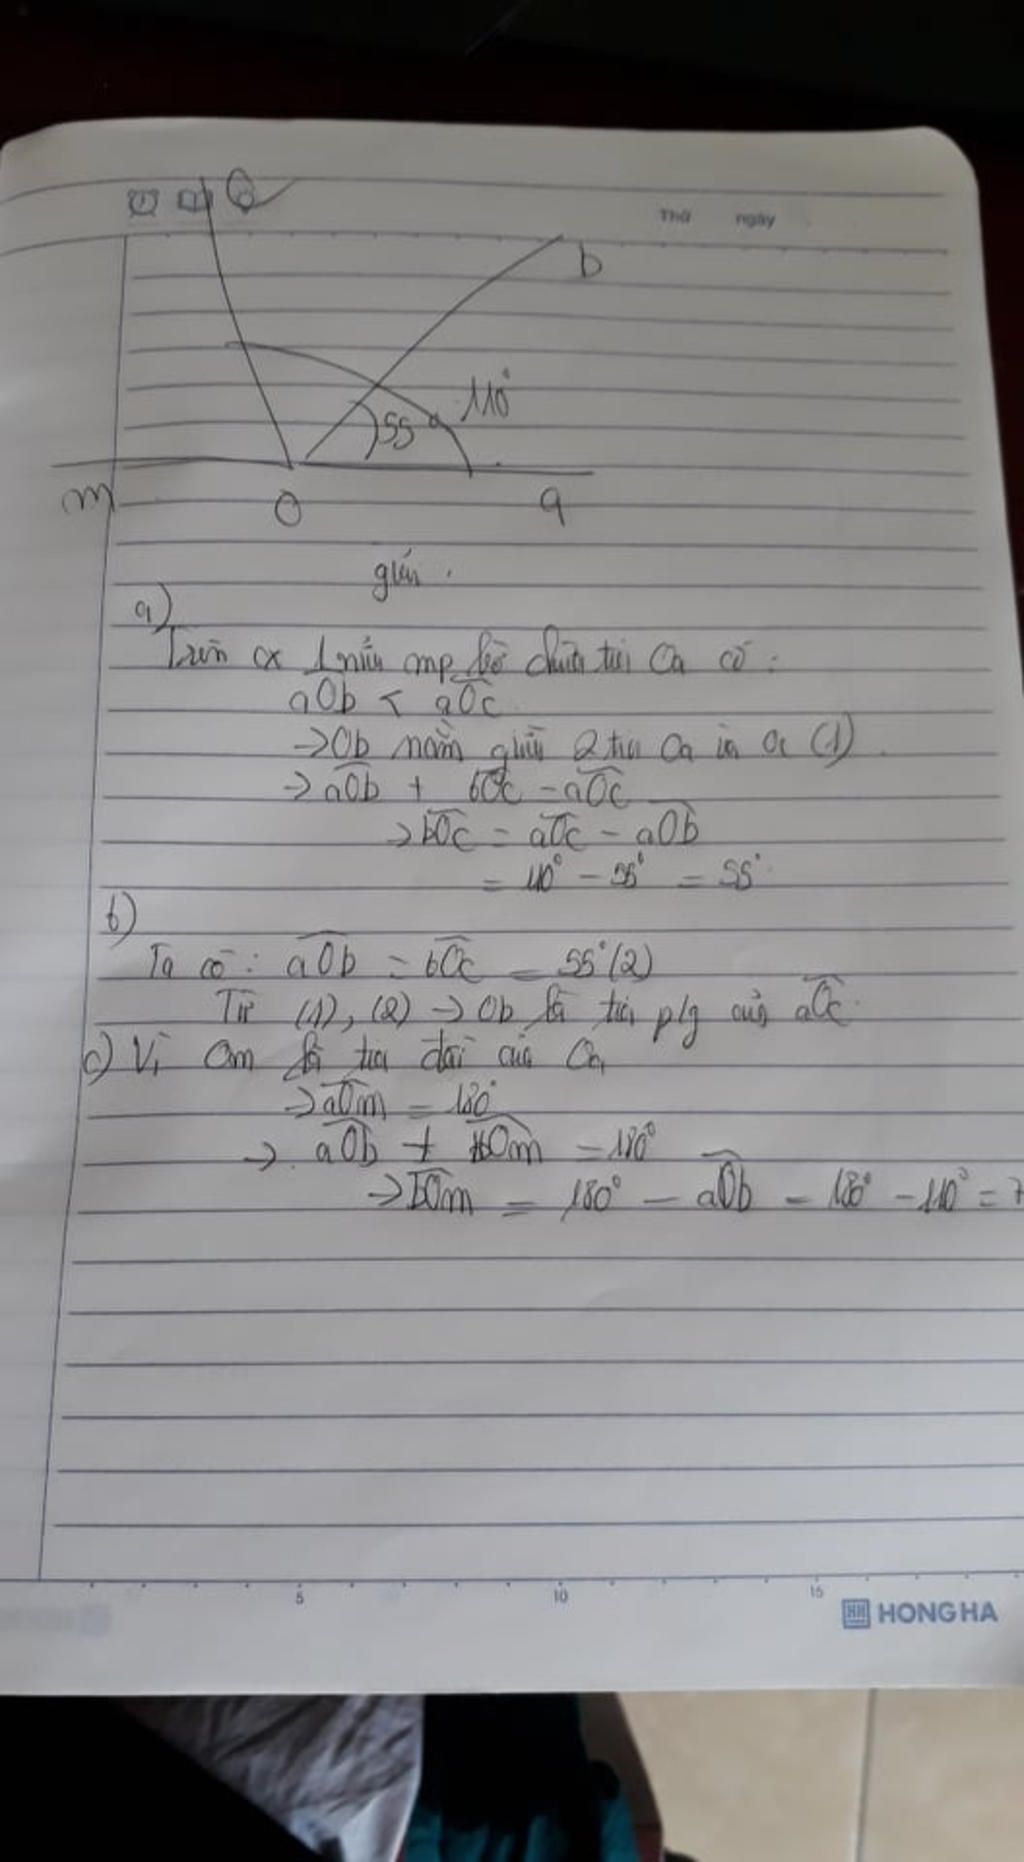 Thứ ngày
b
110°
55°
m
O
a
giải.
a)
Trên cx 1 nửa mp bờ chứa tia Oa có:
aOb < aOc
→ Ob nằm giữa 2 tia Oa và Oc (1).
→ aOb + bOc = aOc
→ bOc = aOc - aOb
= 110° - 55° = 55°
b)
Ta có: aOb = bOc = 55° (2)
Từ (1), (2) → Ob là tia p/g của aOc.
c) Vì Om là tia đối của Oa
→ aOm = 180°
→ aOb + bOm = 180°
→ bOm = 180° - aOb = 180° - 110° = 7
5 10 15
HH HONG HA